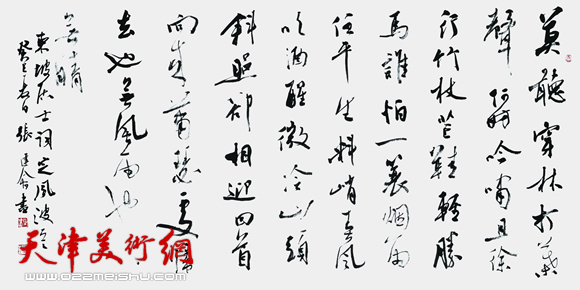 莫聽穿林打葉
聲何妨吟嘯且徐
行竹杖芒鞋輕勝
馬誰怕一蓑烟雨
任平生料峭春風
吹酒醒微冷山頭
斜照却相迎回首
向來蕭瑟處歸
去也無風雨也
無晴
東坡居士詞定風波
癸巳春日張建會書
天津美術網
www.022meishu.com